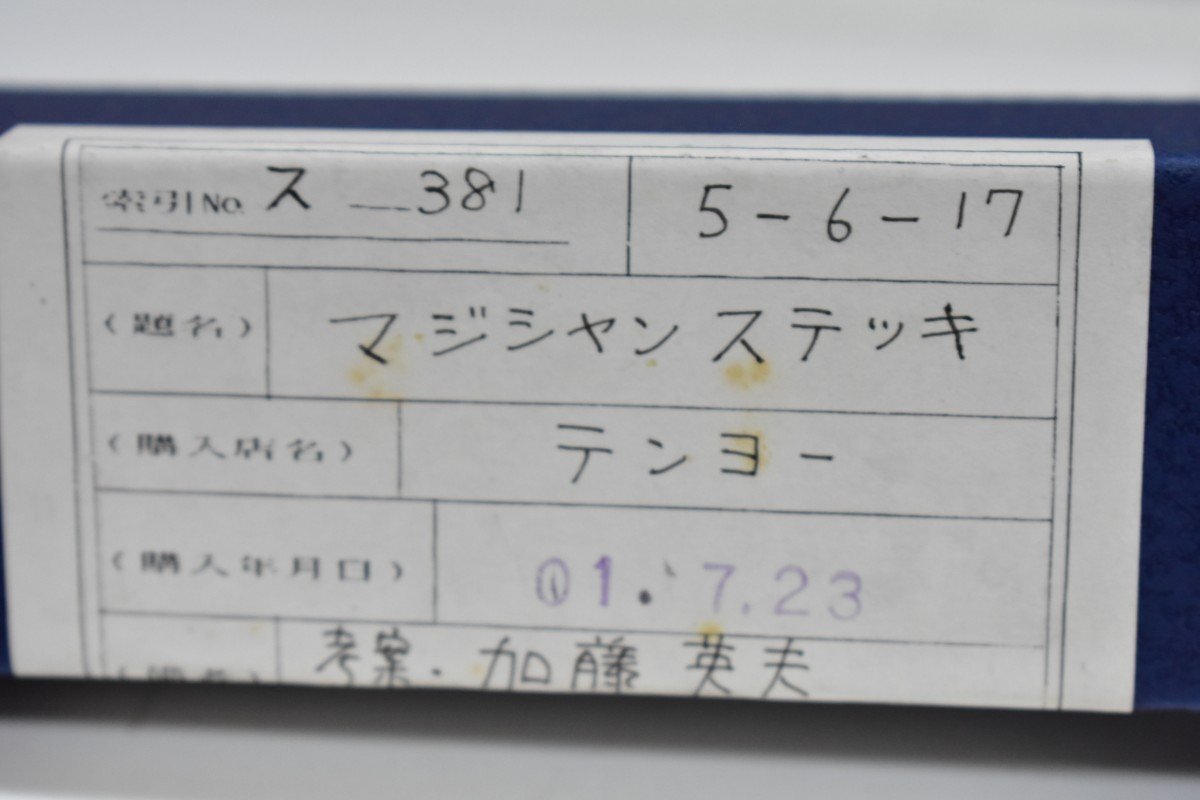 索引No. ス ―381 5-6-17
（題名） マジシャンステッキ
（購入店名） テンヨー
（購入年月日） 01. 7.23
考案・加藤 英夫